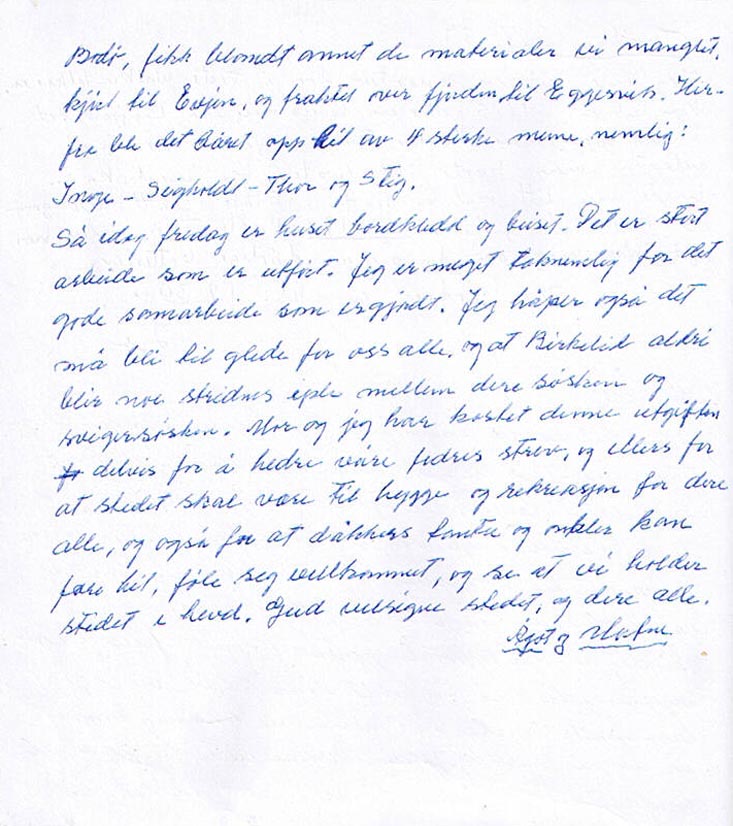 Bodø, fikk blandt annet de materialer vi manglet,
kjørt til Evjen, og fraktet over fjorden til Eggesvik. Her-
fra ble det båret opp hit av 4 sterke menn, nemlig:
Inge - Seigholdt - Thor og Stig.
Så idag fredag er huset bordkledd og beiset. Det er stort
arbeide som er utført. Jeg er meget taknemlig for det
gode samarbeide som er gjordt. Jeg håper også det
må bli til glede for oss alle, og at Birkelid aldri
blir noe stridnes eple mellem dere søsken og
svigersøsken. Mor og jeg har kostet denne utgiften
delvis for å hedre våre fedres strev, og ellers for
at stedet skal være til hygge og rekreasjon for dere
alle, og også for at dåkkers tanter og onkler kan
fare hit, føle seg vellkommet, og se at vi holder
stedet i hevd. Gud velsigne stedet, og dere alle.
Ågot og